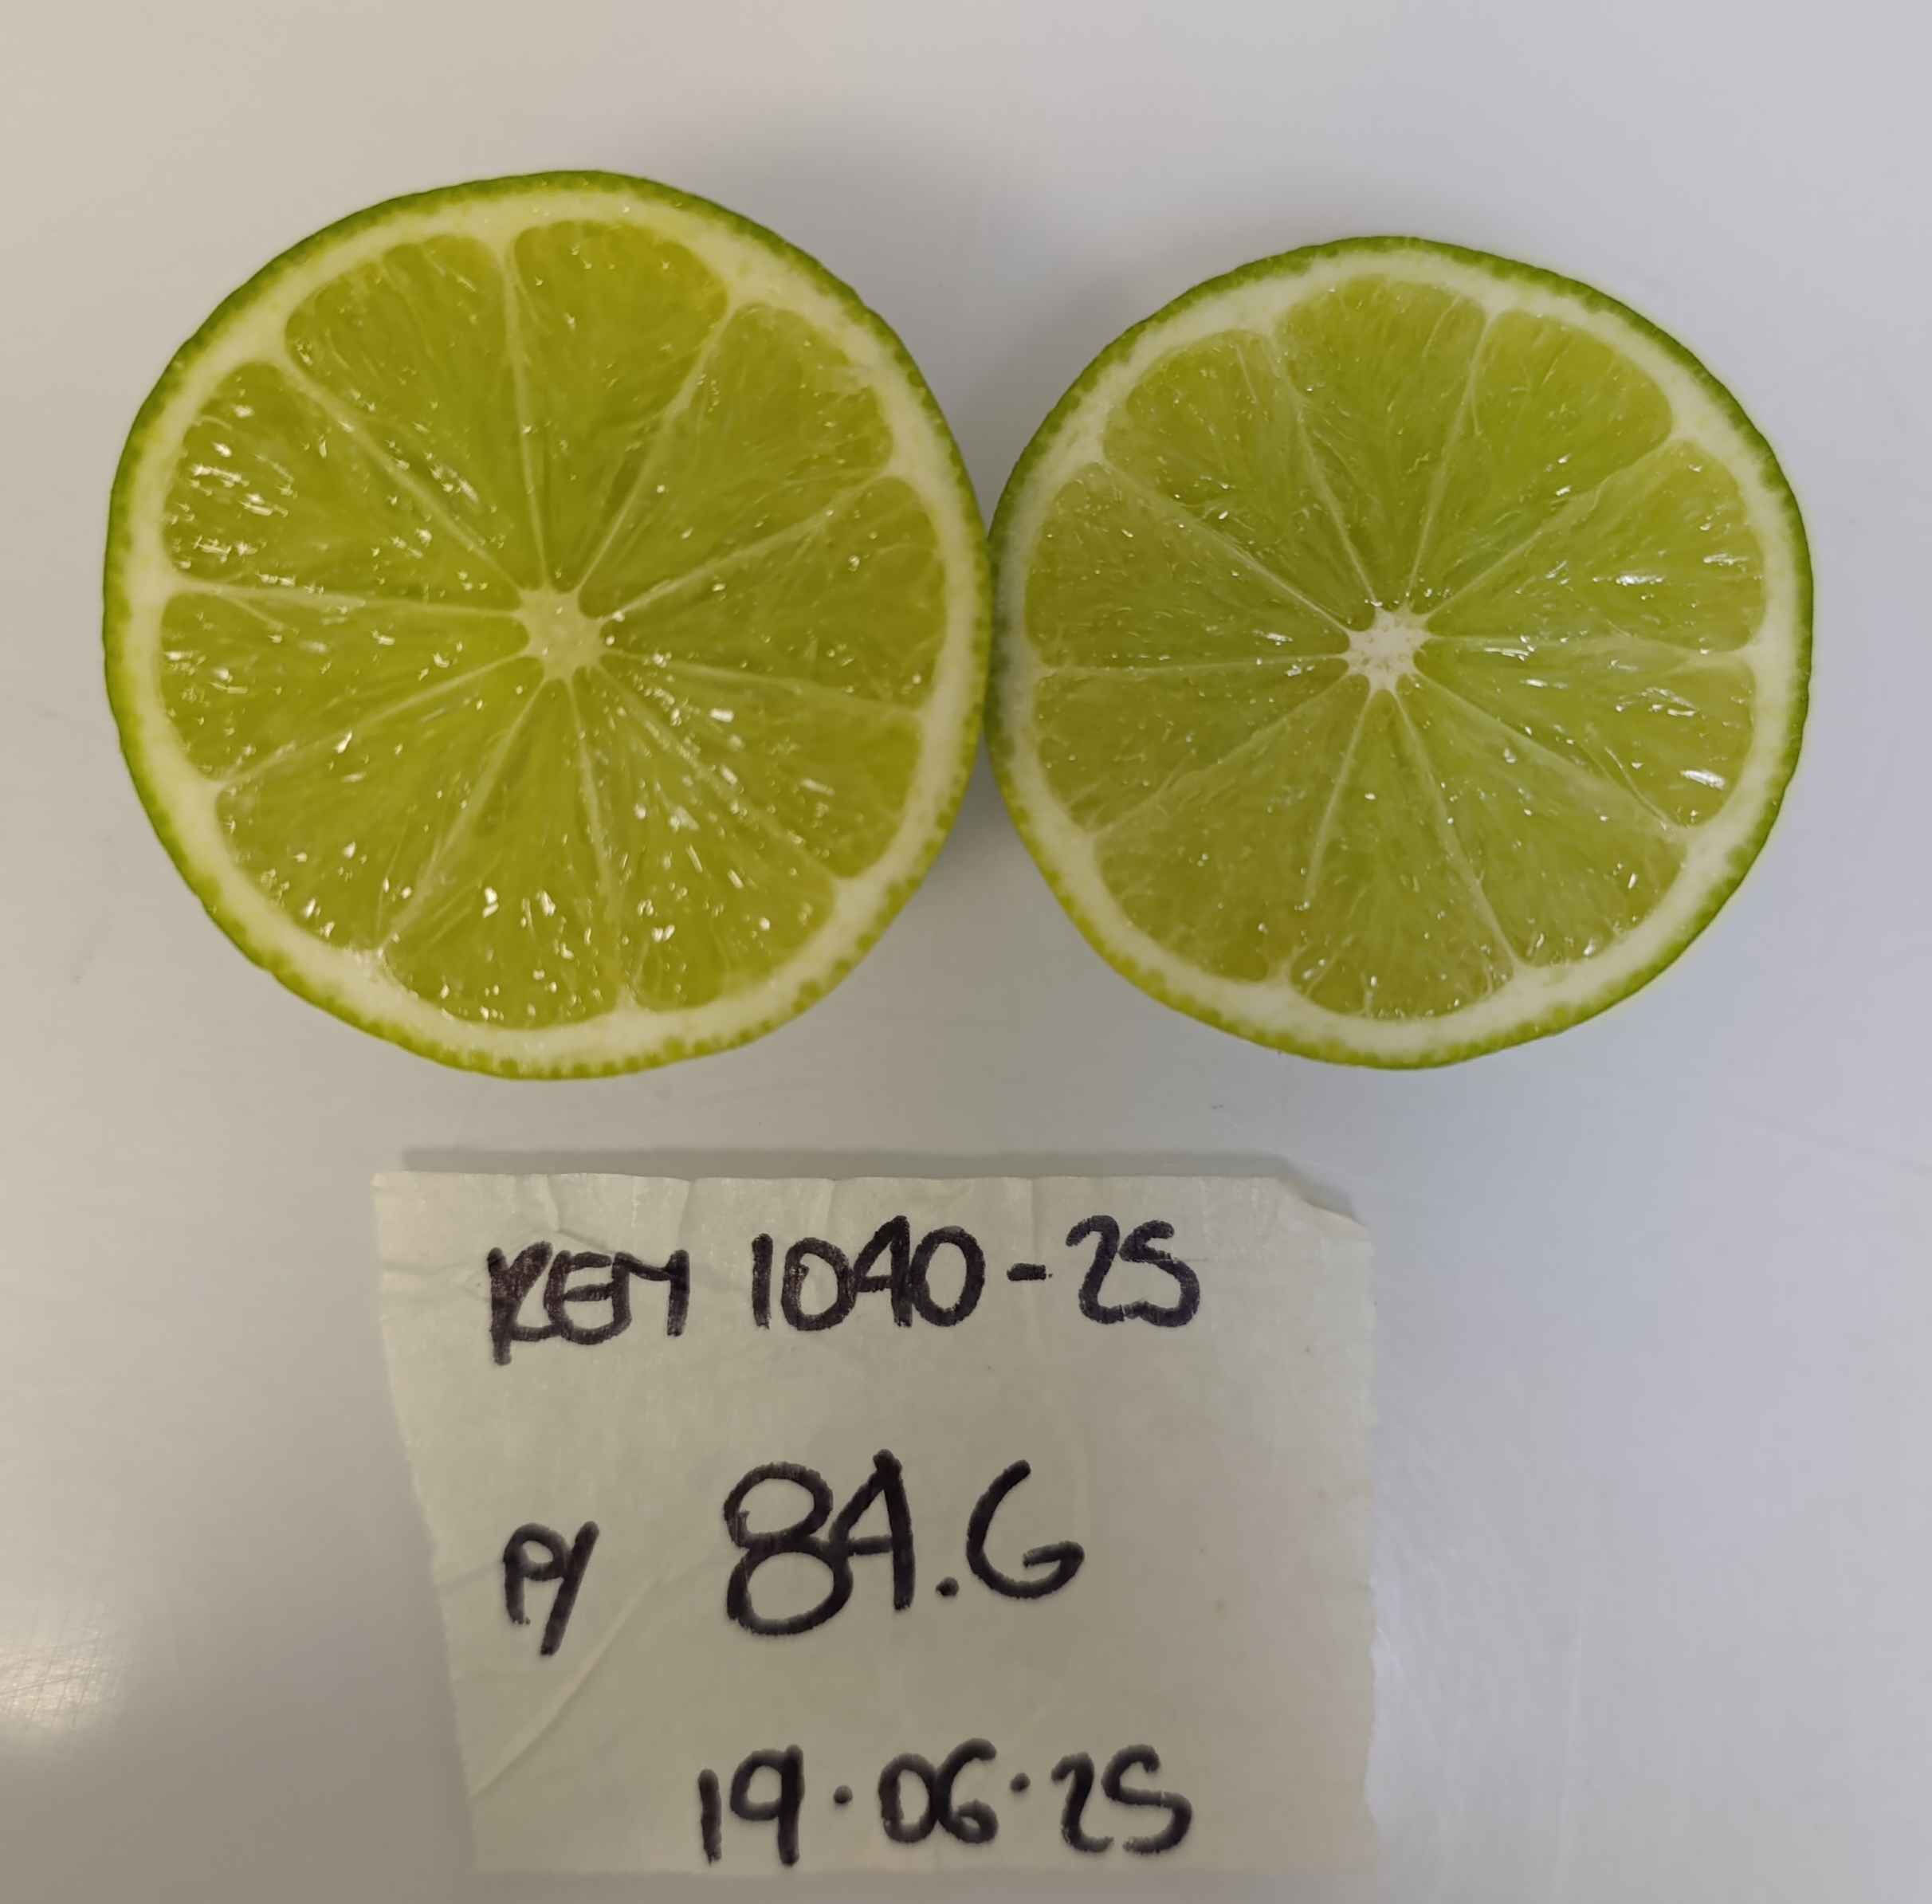 REM 1040-25
P/ 84.6
19.06.25